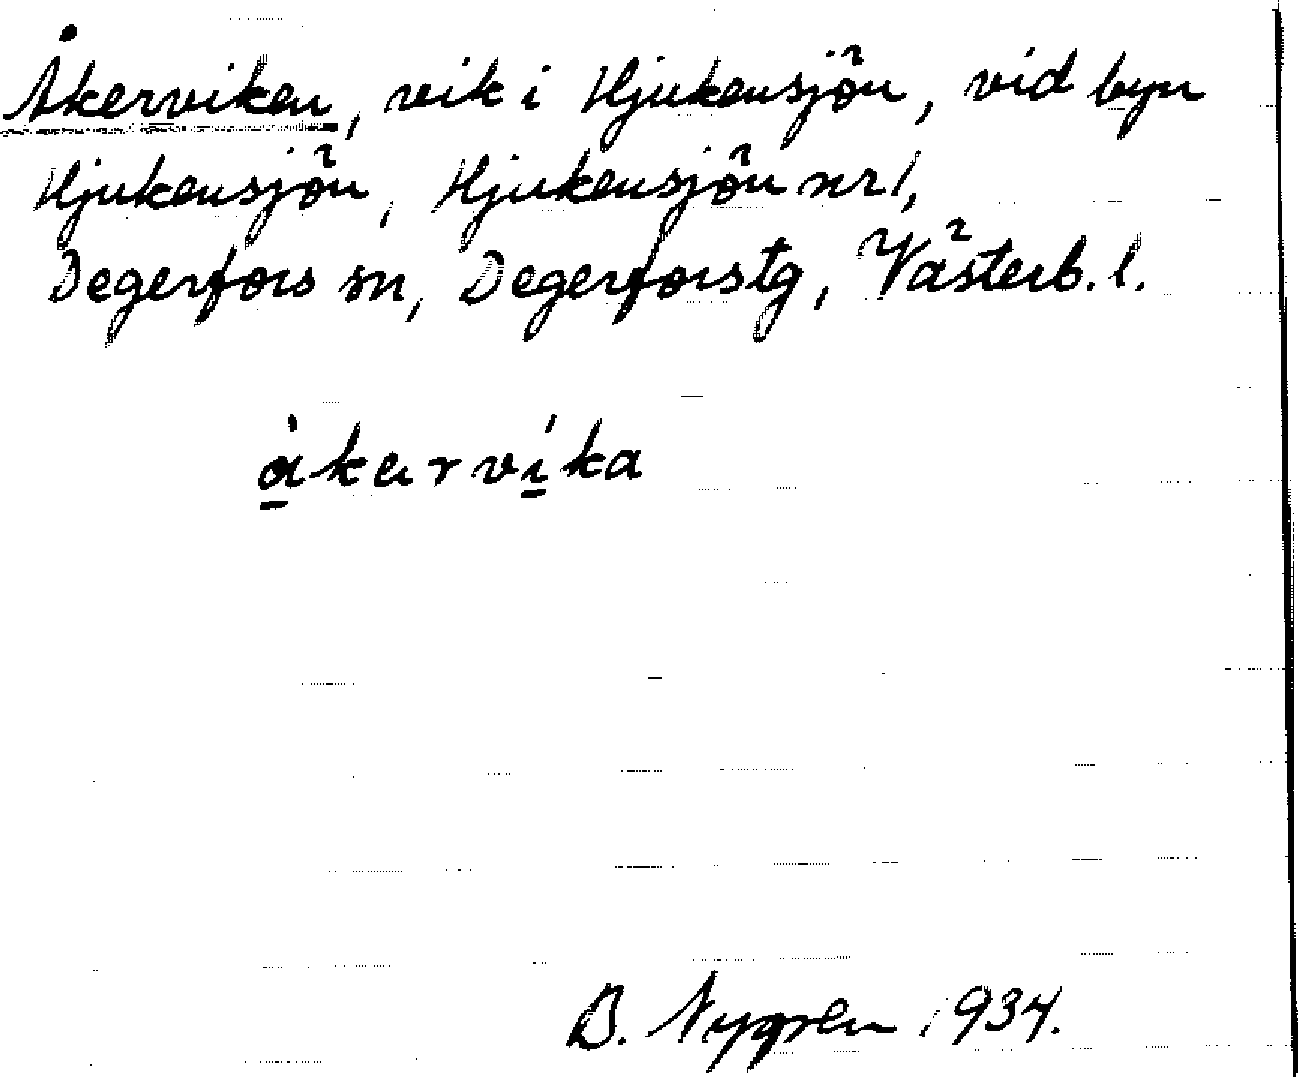 Åkerviken, vik i Hjukensjön, vid byn
Hjukensjön, Hjukensjön nr 1,
Degerfors sn, Degerforstg, Västerb. l.
åkervika
B. Nygren 1934.